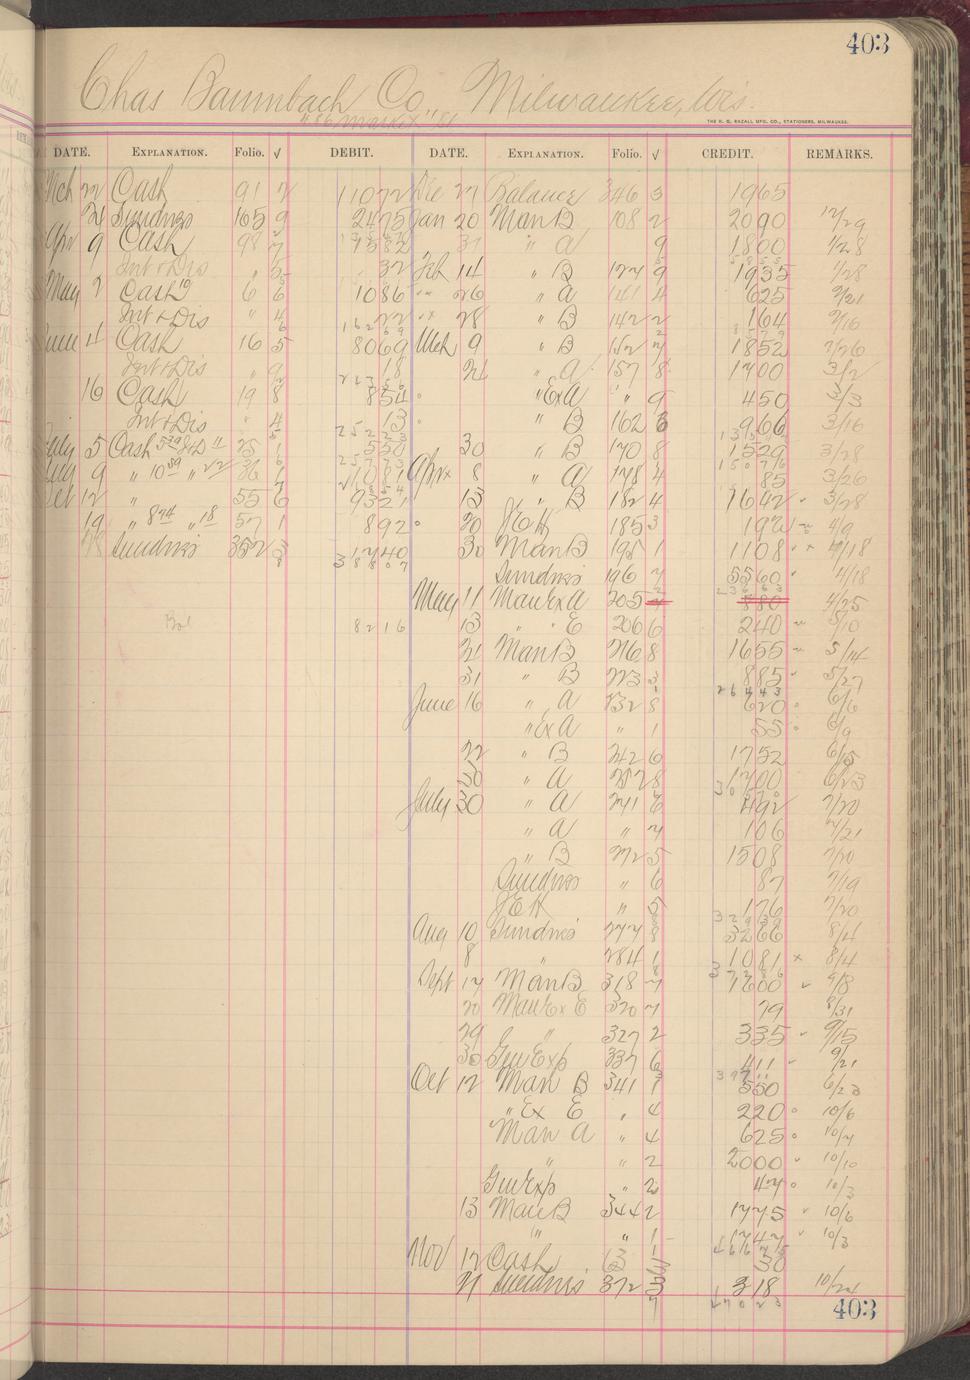 403
Chas Baumbach Co., Milwaukee, Wis.
"86 Market" St
THE H. G. RAZALL MFG. CO., STATIONERS, MILWAUKEE.
DATE. EXPLANATION. Folio. √ DEBIT. DATE. EXPLANATION. Folio. √ CREDIT. REMARKS.
Mch 22 Cash 91 7 11072 Dec 27 Balance 346 3 1965
24 Sundries 165 9 2475 Jan 20 Man B 108 2 2090 12/29
Apr 9 Cash 98 7 1582 31 " A 9 1800 1/28
Int + Dis " 5 32 Feb 14 " B 124 9 1935 1/28
May 7 Cash 6 6 1086 " 26 " A 141 4 625 2/21
Int + Dis " 4 22 " 28 " B 142 2 164 2/16
June 4 Cash 16 5 8069 Mch 9 " B 152 7 1852 2/26
Int + Dis " 9 18 21 " A 157 8 1700 3/2
16 Cash 19 8 854 " Ex A " 9 450 3/3
Int + Dis " 4 13 " B 162 6 966 3/16
July 5 Cash 25 1 550 30 " B 170 8 1529 3/28
9 " 36 1 Apr 8 " A 178 4 85 3/26
Oct 12 " 55 6 9321 13 " B 182 4 1642 3/28
19 " 57 1 892 20 J E H 185 3 192 4/9
Sundries 352 3 1740 30 Man B 195 1 1108 4/18
38807
Sundries 196 7 5560 4/18
May 11 Man Ex A 205 880 4/25
Bal 8216 13 " " E 206 6 240 5/10
21 Man B 216 8 1655 5/14
31 " B 223 3 885 5/27
26443
June 16 " A 232 8 620 6/6
" Ex A " 1 55 6/9
22 " B 242 6 1752 6/15
30 " A 252 8 1700 6/23
July 30 " A 271 6 492 7/20
" A " 7 106 7/21
" B 272 5 1508 7/20
Sundries " 6 87 7/19
J E H " 5 176 7/20
32939
Aug 10 Sundries 277 8 3266 8/4
8 " 284 1 1081 8/4
37286
Sept 17 Man B 318 7 1600 9/8
20 Man Ex E 320 7 79 8/31
29 " " 327 2 335 9/15
30 Gen Exp 337 6 411 9/21
Oct 12 Man B 341 1 550 6/23
" Ex E " 4 220 10/6
Man A " 4 625 10/7
" " 2 2000 10/10
Gen Exp " 2 47 10/3
13 Man B 344 2 1775 10/6
" " 1 1747 10/3
46675
Nov 12 Cash 63 1 30
21 Sundries 372 3 318 10/24
47023
403